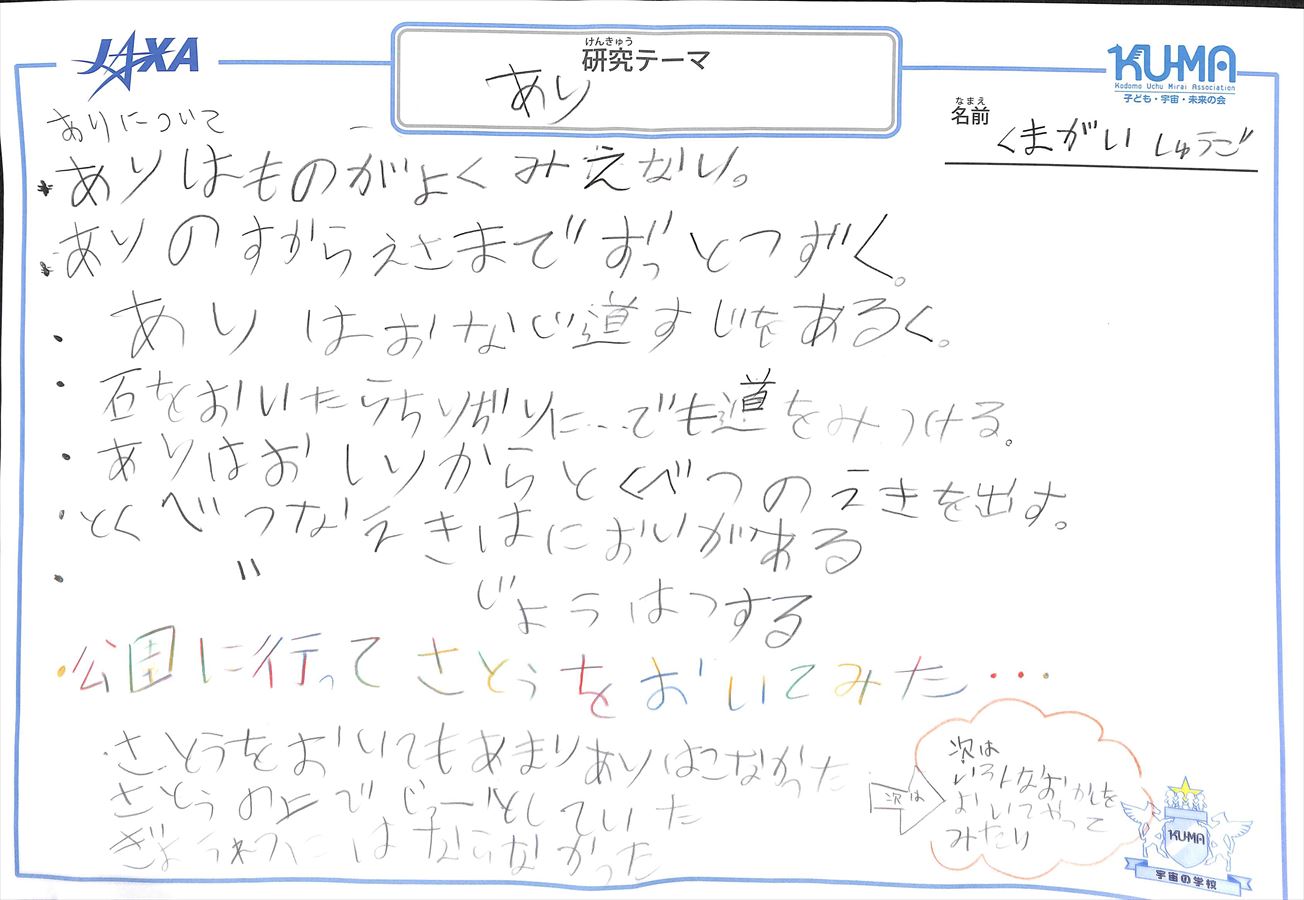 JAXA
けんきゅう
研究テーマ
あり
KU-MA
Kodomo Uchu Mirai Association
子ども・宇宙・未来の会
なまえ
名前
くまがい しゅうご
ありについて
ありはものがよくみえない。
ありのすからえさまでずっとつずく。
・ありはおなじ道すじをあるく。
・石をおいたらちりぢりに…でも道をみつける。
・ありはおしりからとくべつのえきを出す。
・とくべつなえきはにおいがある
・〃 じょうはつする
・公園に行ってさとうをおいてみた・・・
・さとうをおいてもあまりありはこなかった
さとうの上でじっーとしていた
ぎょうれつにはならなかった
次は
次は
いろんなおかしを
おいてやって
みたい
KU-MA
宇宙の学校